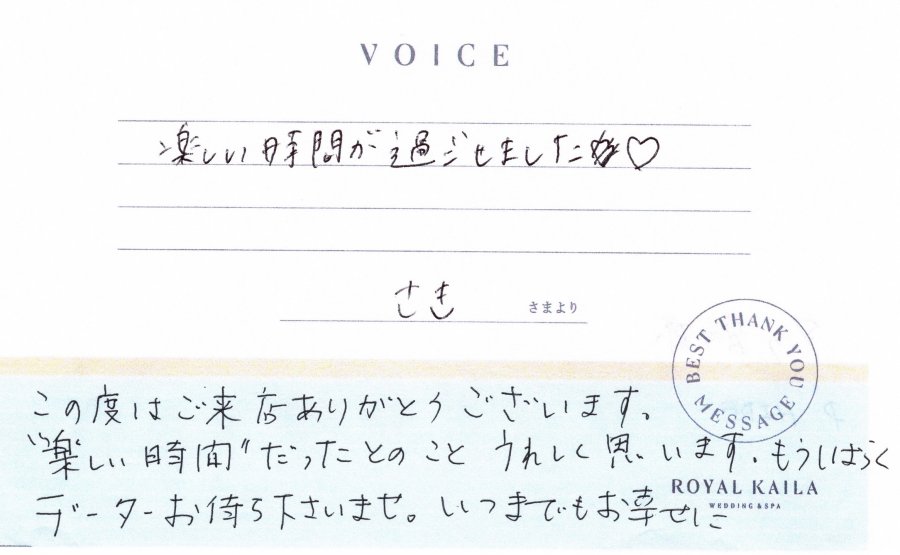 VOICE
楽しい時間が過ごせました♡
さき さまより
BEST THANK YOU MESSAGE
この度はご来店ありがとうございます。
"楽しい時間"だったとのこと うれしく思います。もうしばらく
データーお待ち下さいませ。いつまでもお幸せに
ROYAL KAILA
WEDDING & SPA